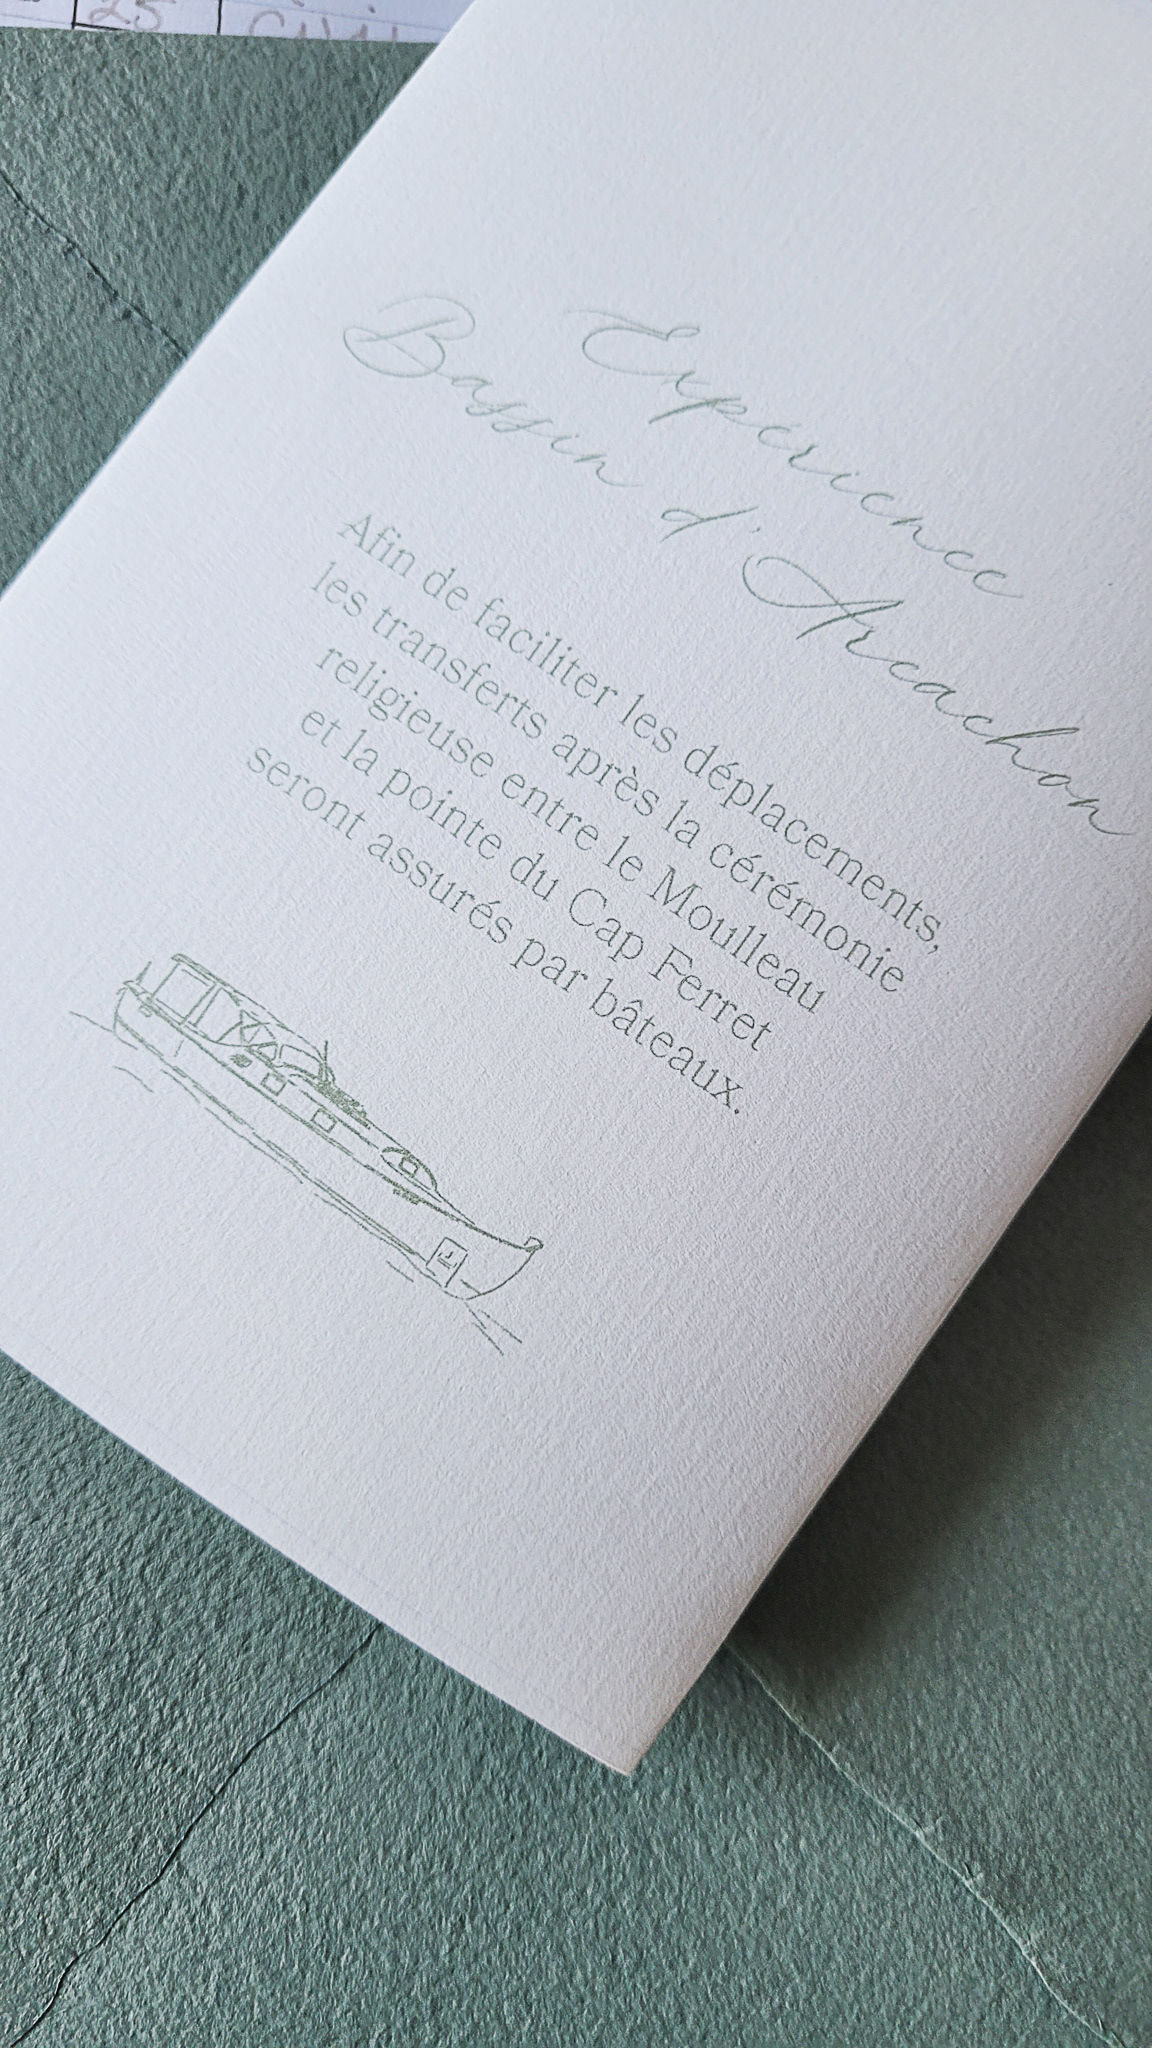 25 Civil
Expérience
Bassin d'Arcachon
Afin de faciliter les déplacements,
les transferts après la cérémonie
religieuse entre le Moulleau
et la pointe du Cap Ferret
seront assurés par bâteaux.